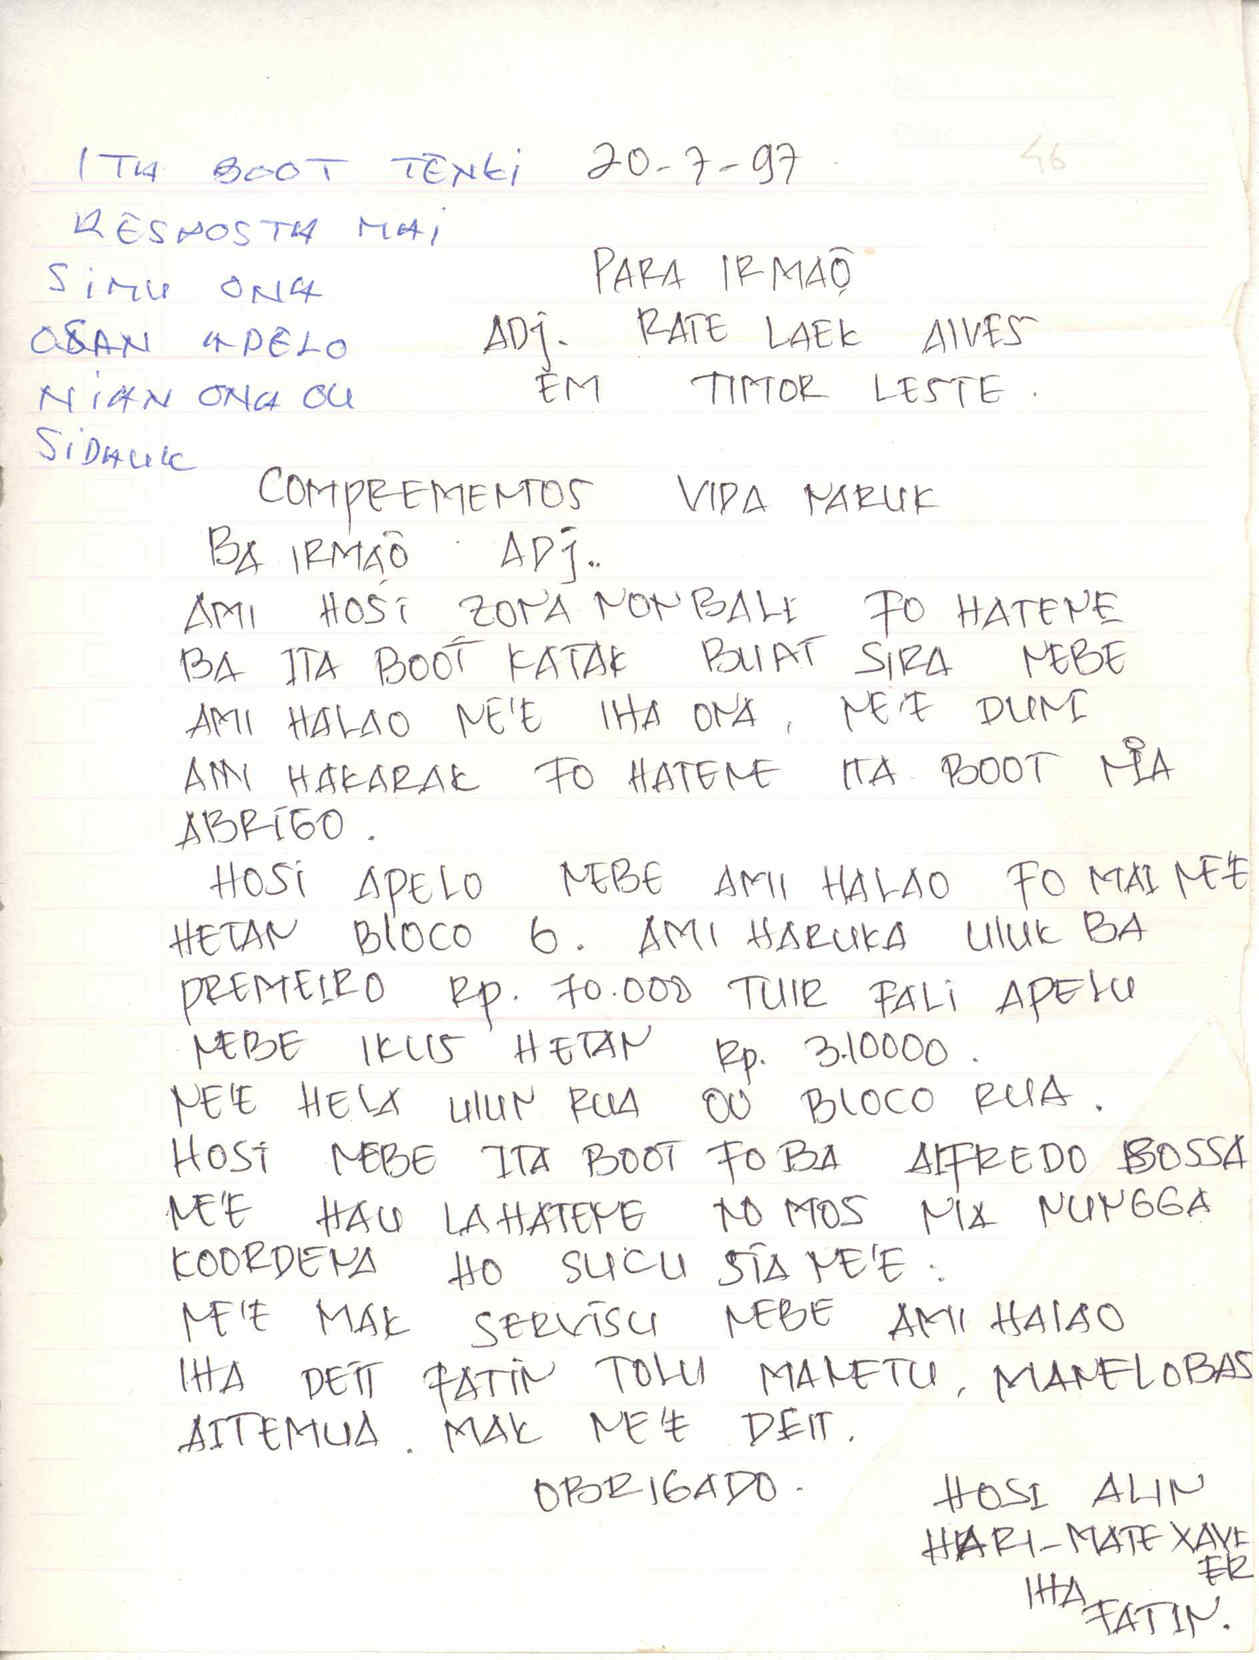 20-7-97
46
ITA BOOT TENKI
RESPOSTA MAI
SIMU ONA
OSAN APELO
NIAN ONA OU
SIDAUK
PARA IRMAÕ
ADJ. RATE LAEK ALVES
EM TIMOR LESTE.
COMPREMENTOS VIDA NARUK
BA IRMAÕ ADJ..
AMI HOSI ZONA NONBALI FO HATENE
BA ITA BOOT KATAK BUAT SIRA NEBE
AMI HALAO NE'E IHA ONA, NE'E DUNI
AMI HAKARAK FO HATENE ITA BOOT NIA
ABRIGO.
HOSI APELO NEBE AMI HALAO FO MAI NE'E
HETAN BLOCO 6. AMI HARUKA ULUK BA
PREMEIRO Rp. 70.000 TUIR FALI APELU
NEBE IKUS HETAN Rp. 3.10000.
NE'E HELA ULUN RUA OU BLOCO RUA.
HOSI NEBE ITA BOOT FO BA ALFREDO BOSSA
NE'E HAU LAHATENE NO MOS NIA NUNGGA
KOORDENA HO SUCU SIA NE'E.
NE'E MAK SERVISU NEBE AMI HALAO
IHA DEIT FATIN TOLU MANETU, MANELOBAS
AITEMUA. MAK NE'E DEIT.
OBRIGADO.
HOSI ALIN
HARI-MATE XAVE
ER
IHA
FATIN.